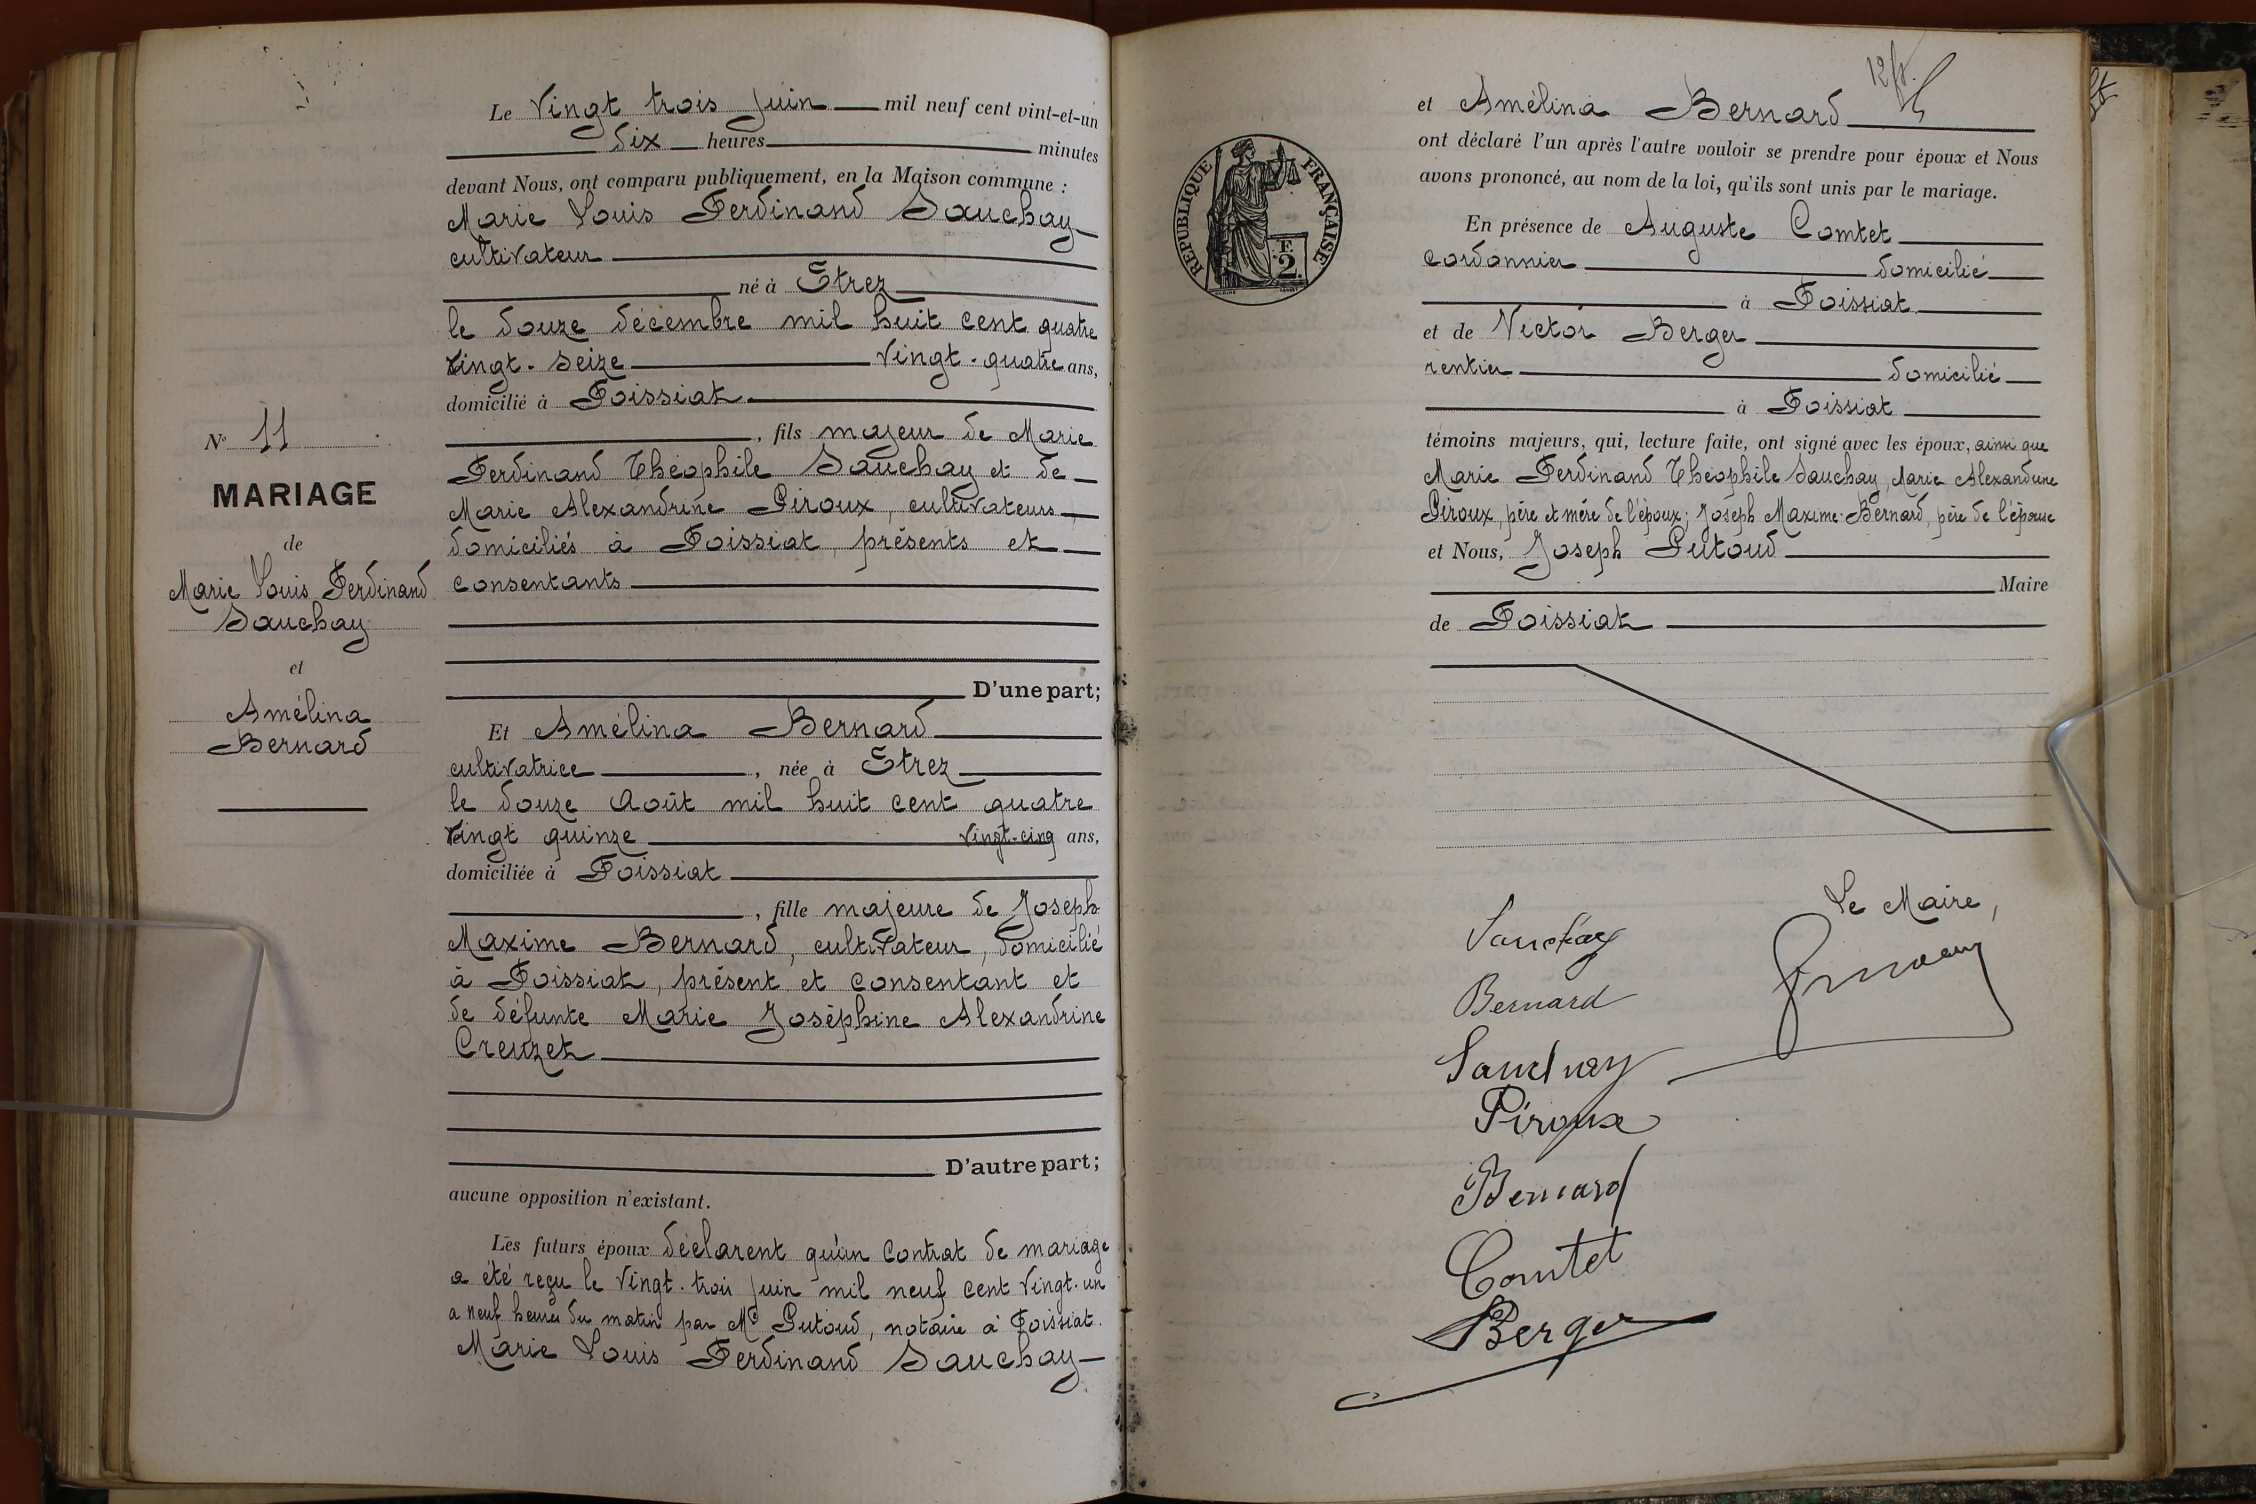 Le Vingt trois Juin mil neuf cent vint-et-un
dix heures minutes
devant Nous, ont comparu publiquement, en la Maison commune :
Marie Louis Ferdinand Sauchay
cultivateur
né à Etrez
le douze décembre mil huit cent quatre
vingt-seize Vingt-quatre ans,
domicilié à Foissiat
, fils majeur de Marie
Ferdinand Théophile Sauchay et de
Marie Alexandrine Piroux, cultivateurs
domiciliés à Foissiat, présents et
consentants
D'une part;
Et Amélina Bernard
cultivatrice, née à Etrez
le douze Août mil huit cent quatre
vingt quinze Vingt-cinq ans,
domiciliée à Foissiat
, fille majeure de Joseph
Maxime Bernard, cultivateur, domicilié
à Foissiat, présent et consentant et
de défunte Marie Joséphine Alexandrine
Creuzet
D'autre part;
aucune opposition n'existant.
Les futurs époux déclarent qu'un contrat de mariage
a été reçu le Vingt-trois Juin mil neuf cent Vingt-un
a neuf heures du matin par Me Putoud, notaire à Foissiat.
Marie Louis Ferdinand Sauchay
No 11
MARIAGE
de
Marie Louis Ferdinand
Sauchay
et
Amélina
Bernard
et Amélina Bernard
ont déclaré l'un après l'autre vouloir se prendre pour époux et Nous
avons prononcé, au nom de la loi, qu'ils sont unis par le mariage.
En présence de Auguste Comtet
cordonnier domicilié
à Foissiat
et de Victor Berger
rentier domicilié
à Foissiat
témoins majeurs, qui, lecture faite, ont signé avec les époux, ainsi que
Marie Ferdinand Théophile Sauchay, Marie Alexandrine
Piroux, père et mère de l'époux; Joseph Maxime Bernard, père de l'épouse
et Nous, Joseph Putoud
Maire
de Foissiat
REPUBLIQUE FRANÇAISE
F.
2
Le Maire,
Sauchay
Bernard
Sauchay
Piroux
Bernard
Comtet
Berger